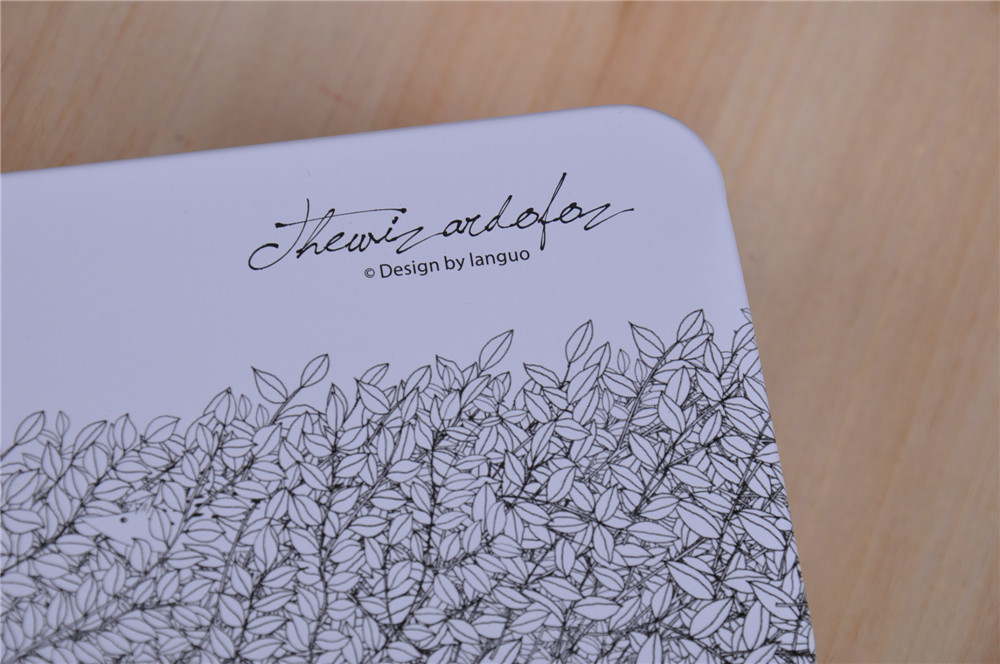 Thewizardofoz
© Design by languo